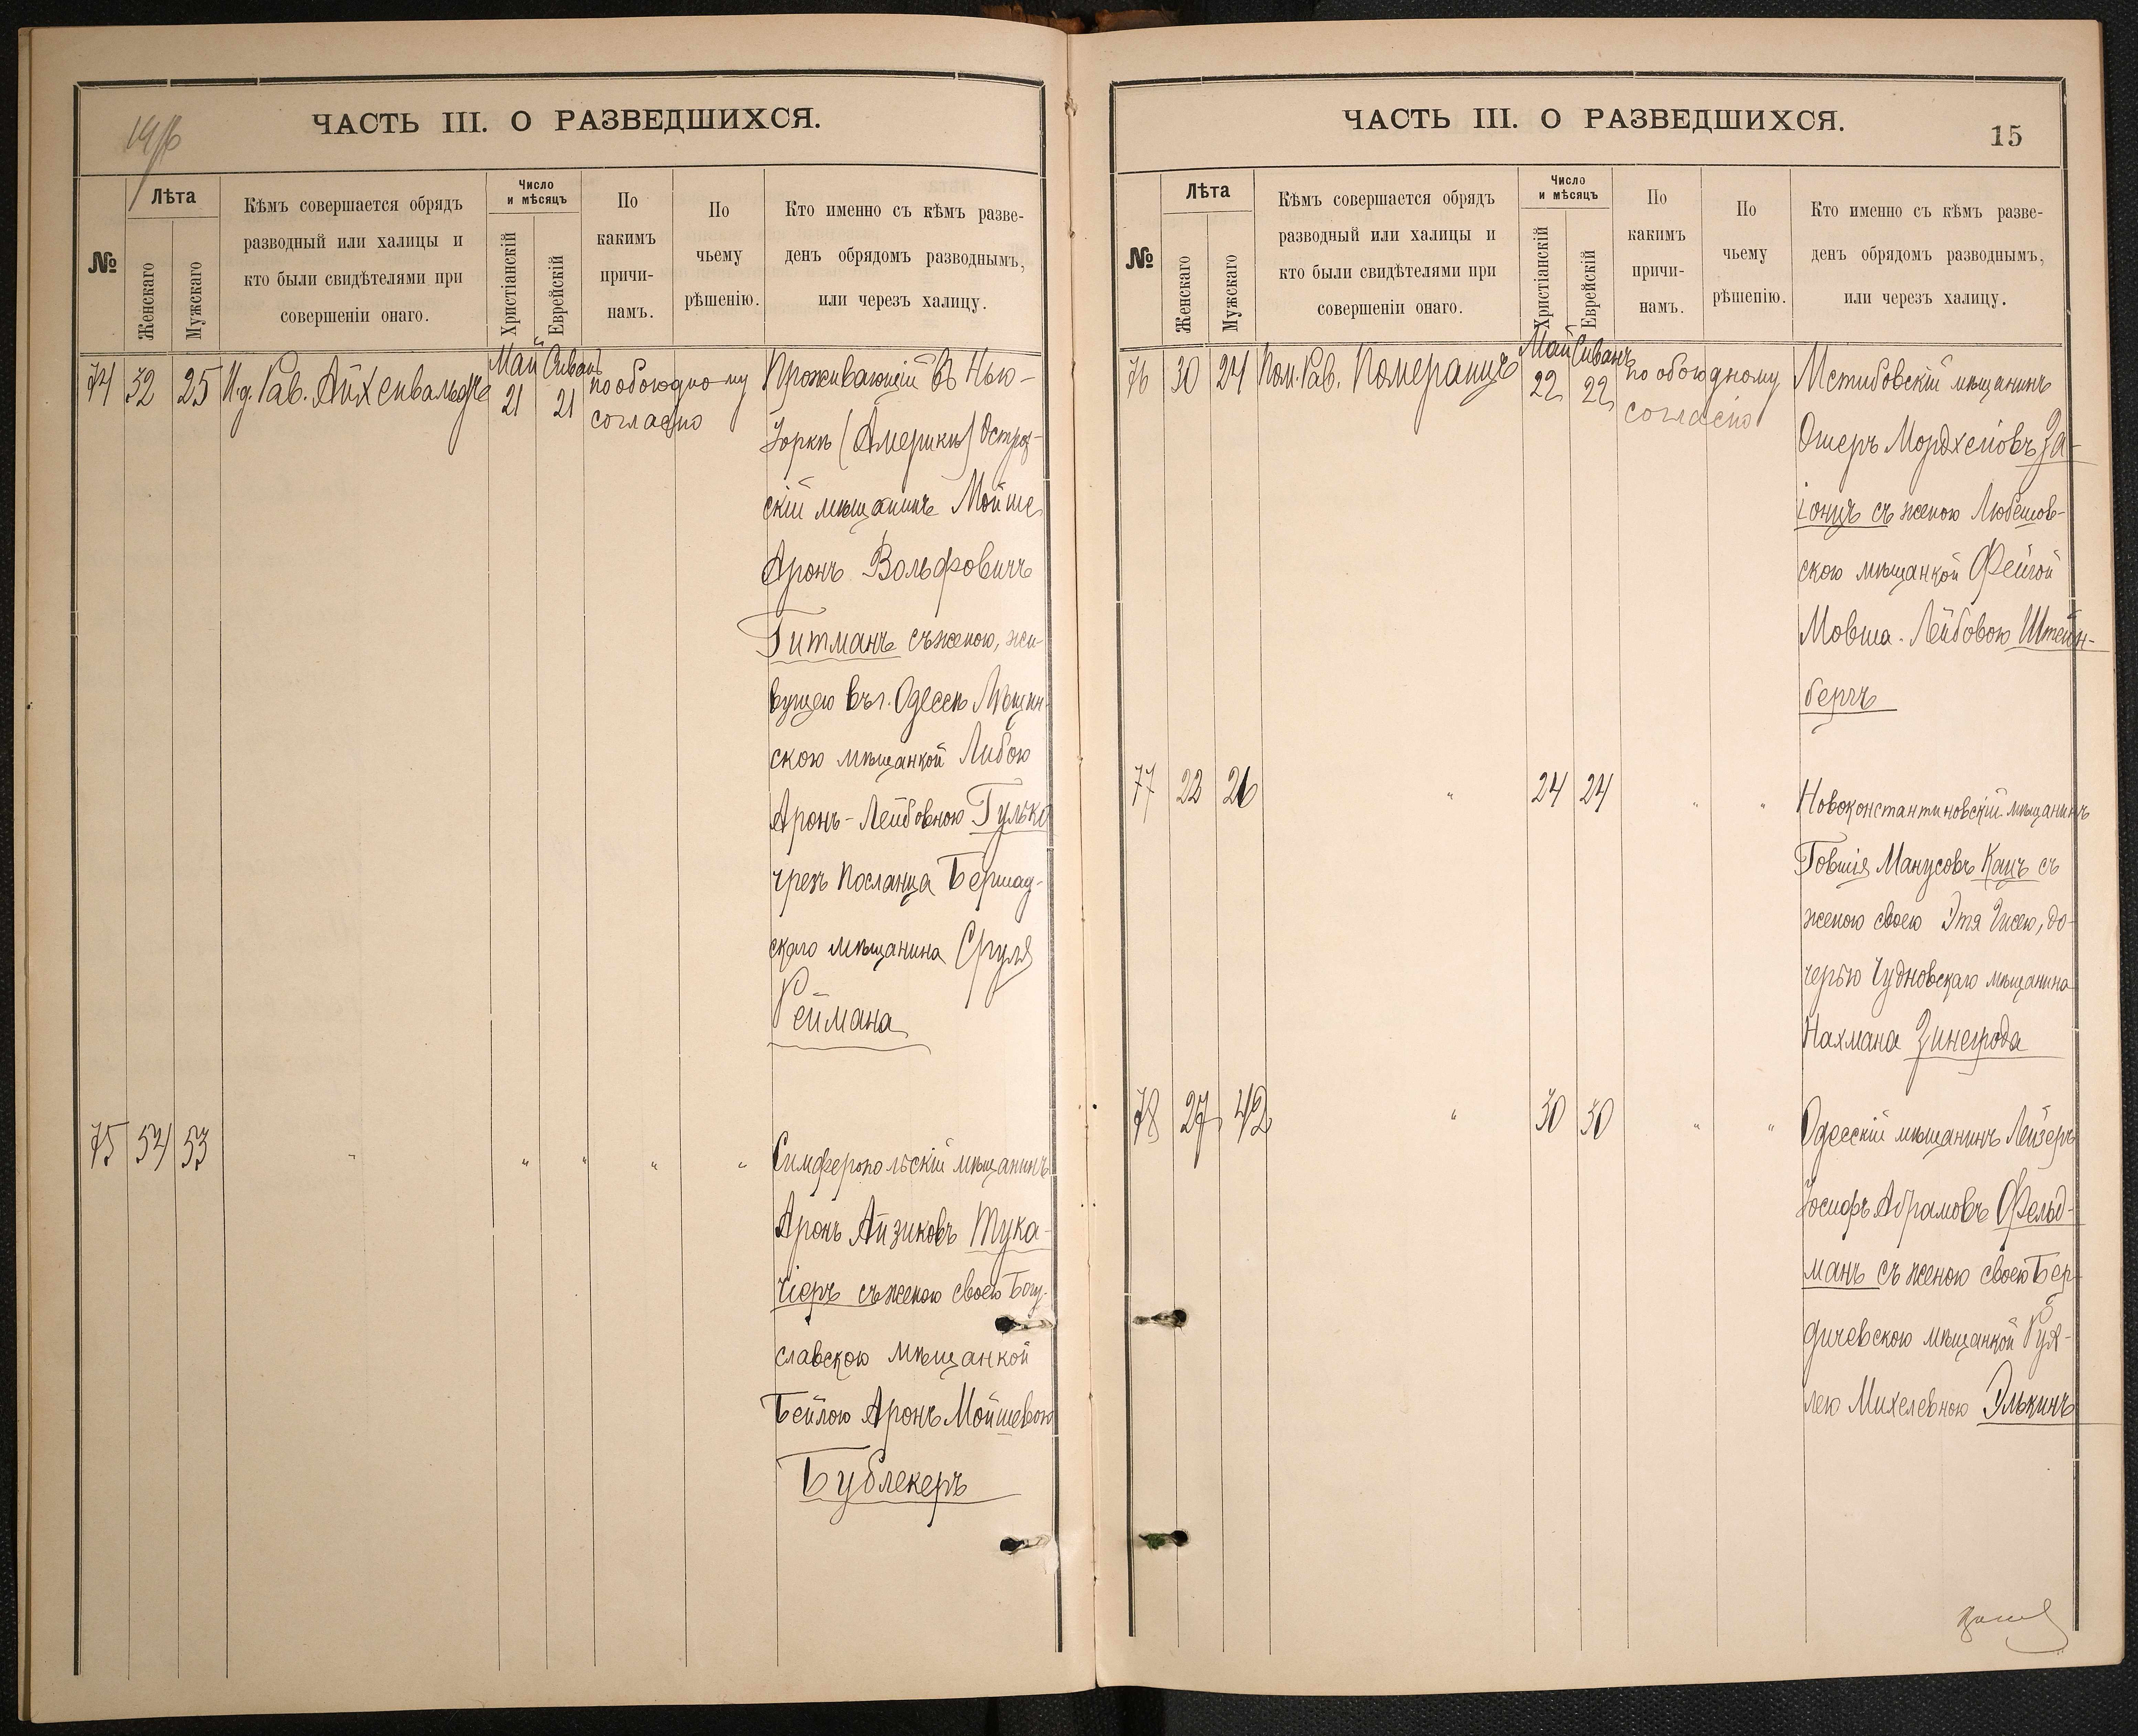 1916
ЧАСТЬ III. О РАЗВЕДШИХСЯ.
№
Лѣта
Женскаго
Мужскаго
Кѣмъ совершается обрядъ
разводный или халицы и
кто были свидѣтелями при
совершеніи онаго.
Число
и мѣсяцъ
Христіанскій
Еврейскій
По
какимъ
причи-
намъ.
По
чьему
рѣшенію.
Кто именно съ кѣмъ разве-
денъ обрядомъ разводнымъ,
или черезъ халицу.
74 32 25 И.д. Рав. Айхенвальдъ Май 21 Сиванъ 21 по обоюдному
согласію
Проживающій въ Нью-
Іоркѣ (Америкѣ) Острог-
скій мѣщанинъ Мойше
Аронъ Вольфовичъ
Гитманъ съ женою, жи-
вущею въ г. Одессѣ
скою мѣщанкой Либою
Аронъ-Лейбовною Гулько
чрезъ посланца Бершад-
скаго мѣщанина Сруля
Реймана
75 54 53 " " " " "
Симферопольскій мѣщанинъ
Аронъ Айзиковъ Тука-
чіеръ съ женою своею Богу-
славскою мѣщанкой
Бейлою Аронъ Мойшевою
Бублекеръ
ЧАСТЬ III. О РАЗВЕДШИХСЯ.
15
№
Лѣта
Женскаго
Мужскаго
Кѣмъ совершается обрядъ
разводный или халицы и
кто были свидѣтелями при
совершеніи онаго.
Число
и мѣсяцъ
Христіанскій
Еврейскій
По
какимъ
причи-
намъ.
По
чьему
рѣшенію.
Кто именно съ кѣмъ разве-
денъ обрядомъ разводнымъ,
или черезъ халицу.
76 30 24 Пом. Рав. Померанцъ Май 22 Сиванъ 22 по обоюдному
согласію
Мстибовскій мѣщанинъ
Ошеръ Мордхеловъ За-
іонцъ съ женою Любешов-
скою мѣщанкой Фейгой
Мовша-Лейбовою Штейн-
бергъ
77 22 26 " 24 24 " "
Новоконстантиновскій мѣщанинъ
Товшія Манусовъ Кацъ съ
женою своею Этя , до-
черью Чудновскаго мѣщанина
Нахмана Зинегрода
78 27 42 " 30 30 " "
Одесскій мѣщанинъ Лейзеръ
Іосифъ Абрамовъ Фельд-
манъ съ женою своею Бер-
дичевскою мѣщанкой Рух-
лею Михелевною Элькинъ